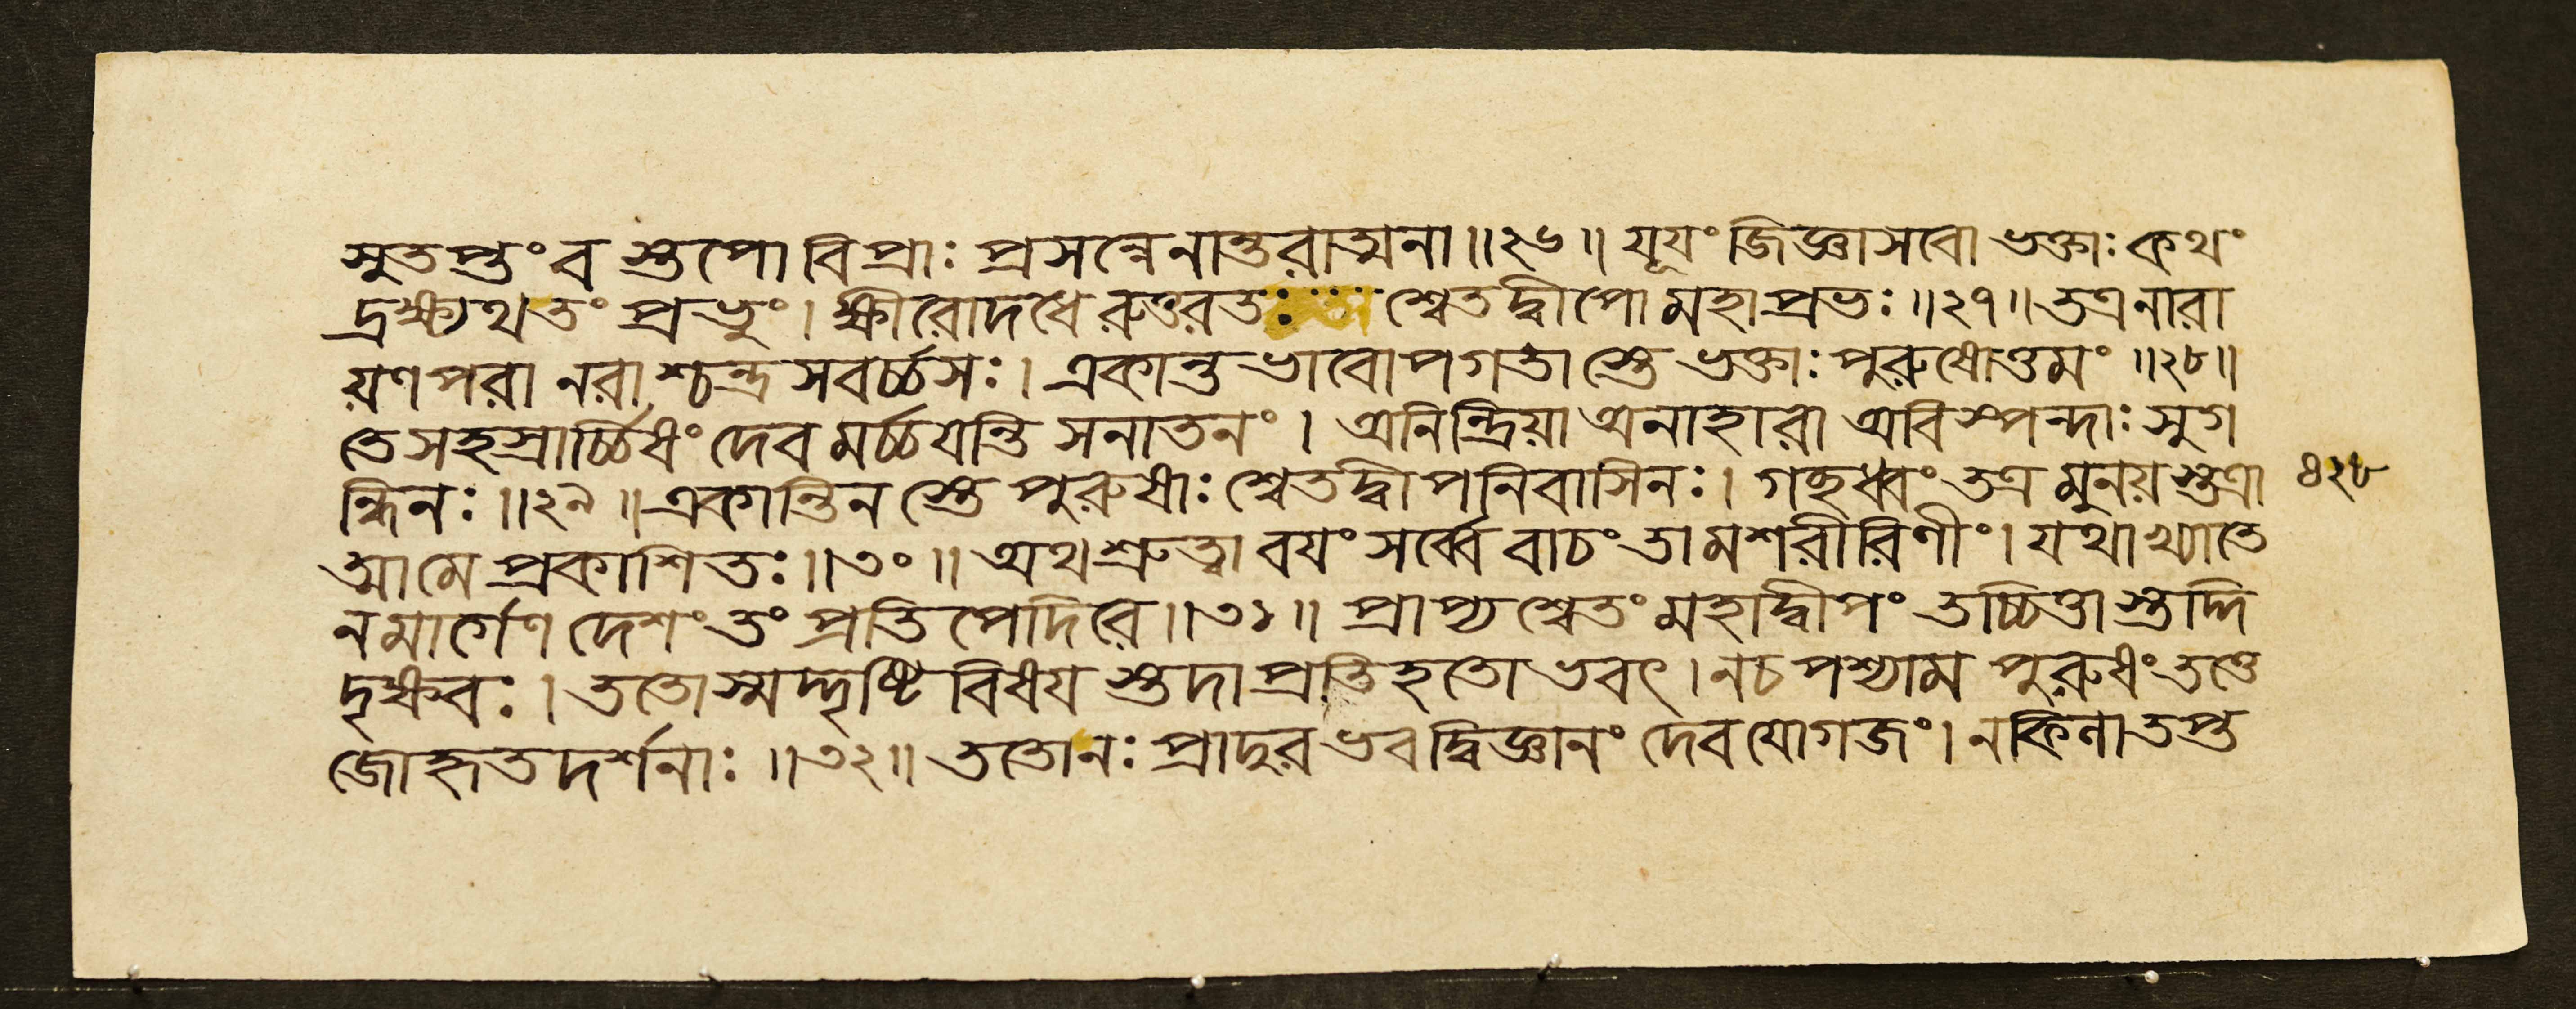 সুতপ্তং ব স্তপো বিপ্রাঃ প্রসন্নেনান্তরাত্মনা॥২৬॥ যূযং জিজ্ঞাসবো ভক্তাঃ কথং
দ্রক্ষ্যথ তং প্রভুং। ক্ষীরোদধে রুত্তরতঃ শ্বেতদ্বীপো মহাপ্রভঃ॥২৭॥ তত্র নারা
য়ণপরা নরাশ্চন্দ্রসবর্চ্চসঃ। একান্তভাবোপগতাস্তে ভক্তাঃ পুরুষোত্তমং॥২৮॥
তে সহস্রার্চ্চিষং দেবমর্চ্চযন্তি সনাতনং। অনিন্দ্রিয়া অনাহারা অবিস্পন্দাঃ সুগ
ন্ধিনঃ॥২৯॥ একান্তিনস্তে পুরুষাঃ শ্বেতদ্বীপনিবাসিনঃ। গচ্ছধ্বং তত্র মুনয়স্তত্রা ৪২৮
আমে প্রকাশিতঃ॥৩০॥ অথ শ্রুত্বা বযং সর্ব্বে বাচং তামশরীরিণীং। যথাখ্যাতে
ন মার্গেণ দেশং তং প্রতিপেদিরে॥৩১॥ প্রাপ্য শ্বেতং মহাদ্বীপং তচ্চিত্তাস্তদ্দি
দৃক্ষবঃ। ততোস্মদ্দৃষ্টিবিষযস্তদা প্রতিহতোভবৎ। ন চ পশ্যাম পুরুষং তত্তে
জোহৃতদর্শনাঃ॥৩২॥ ততো নঃ প্রাদুরভবদ্বিজ্ঞানং দেবযোগজং। ন কিলাতপ্ত